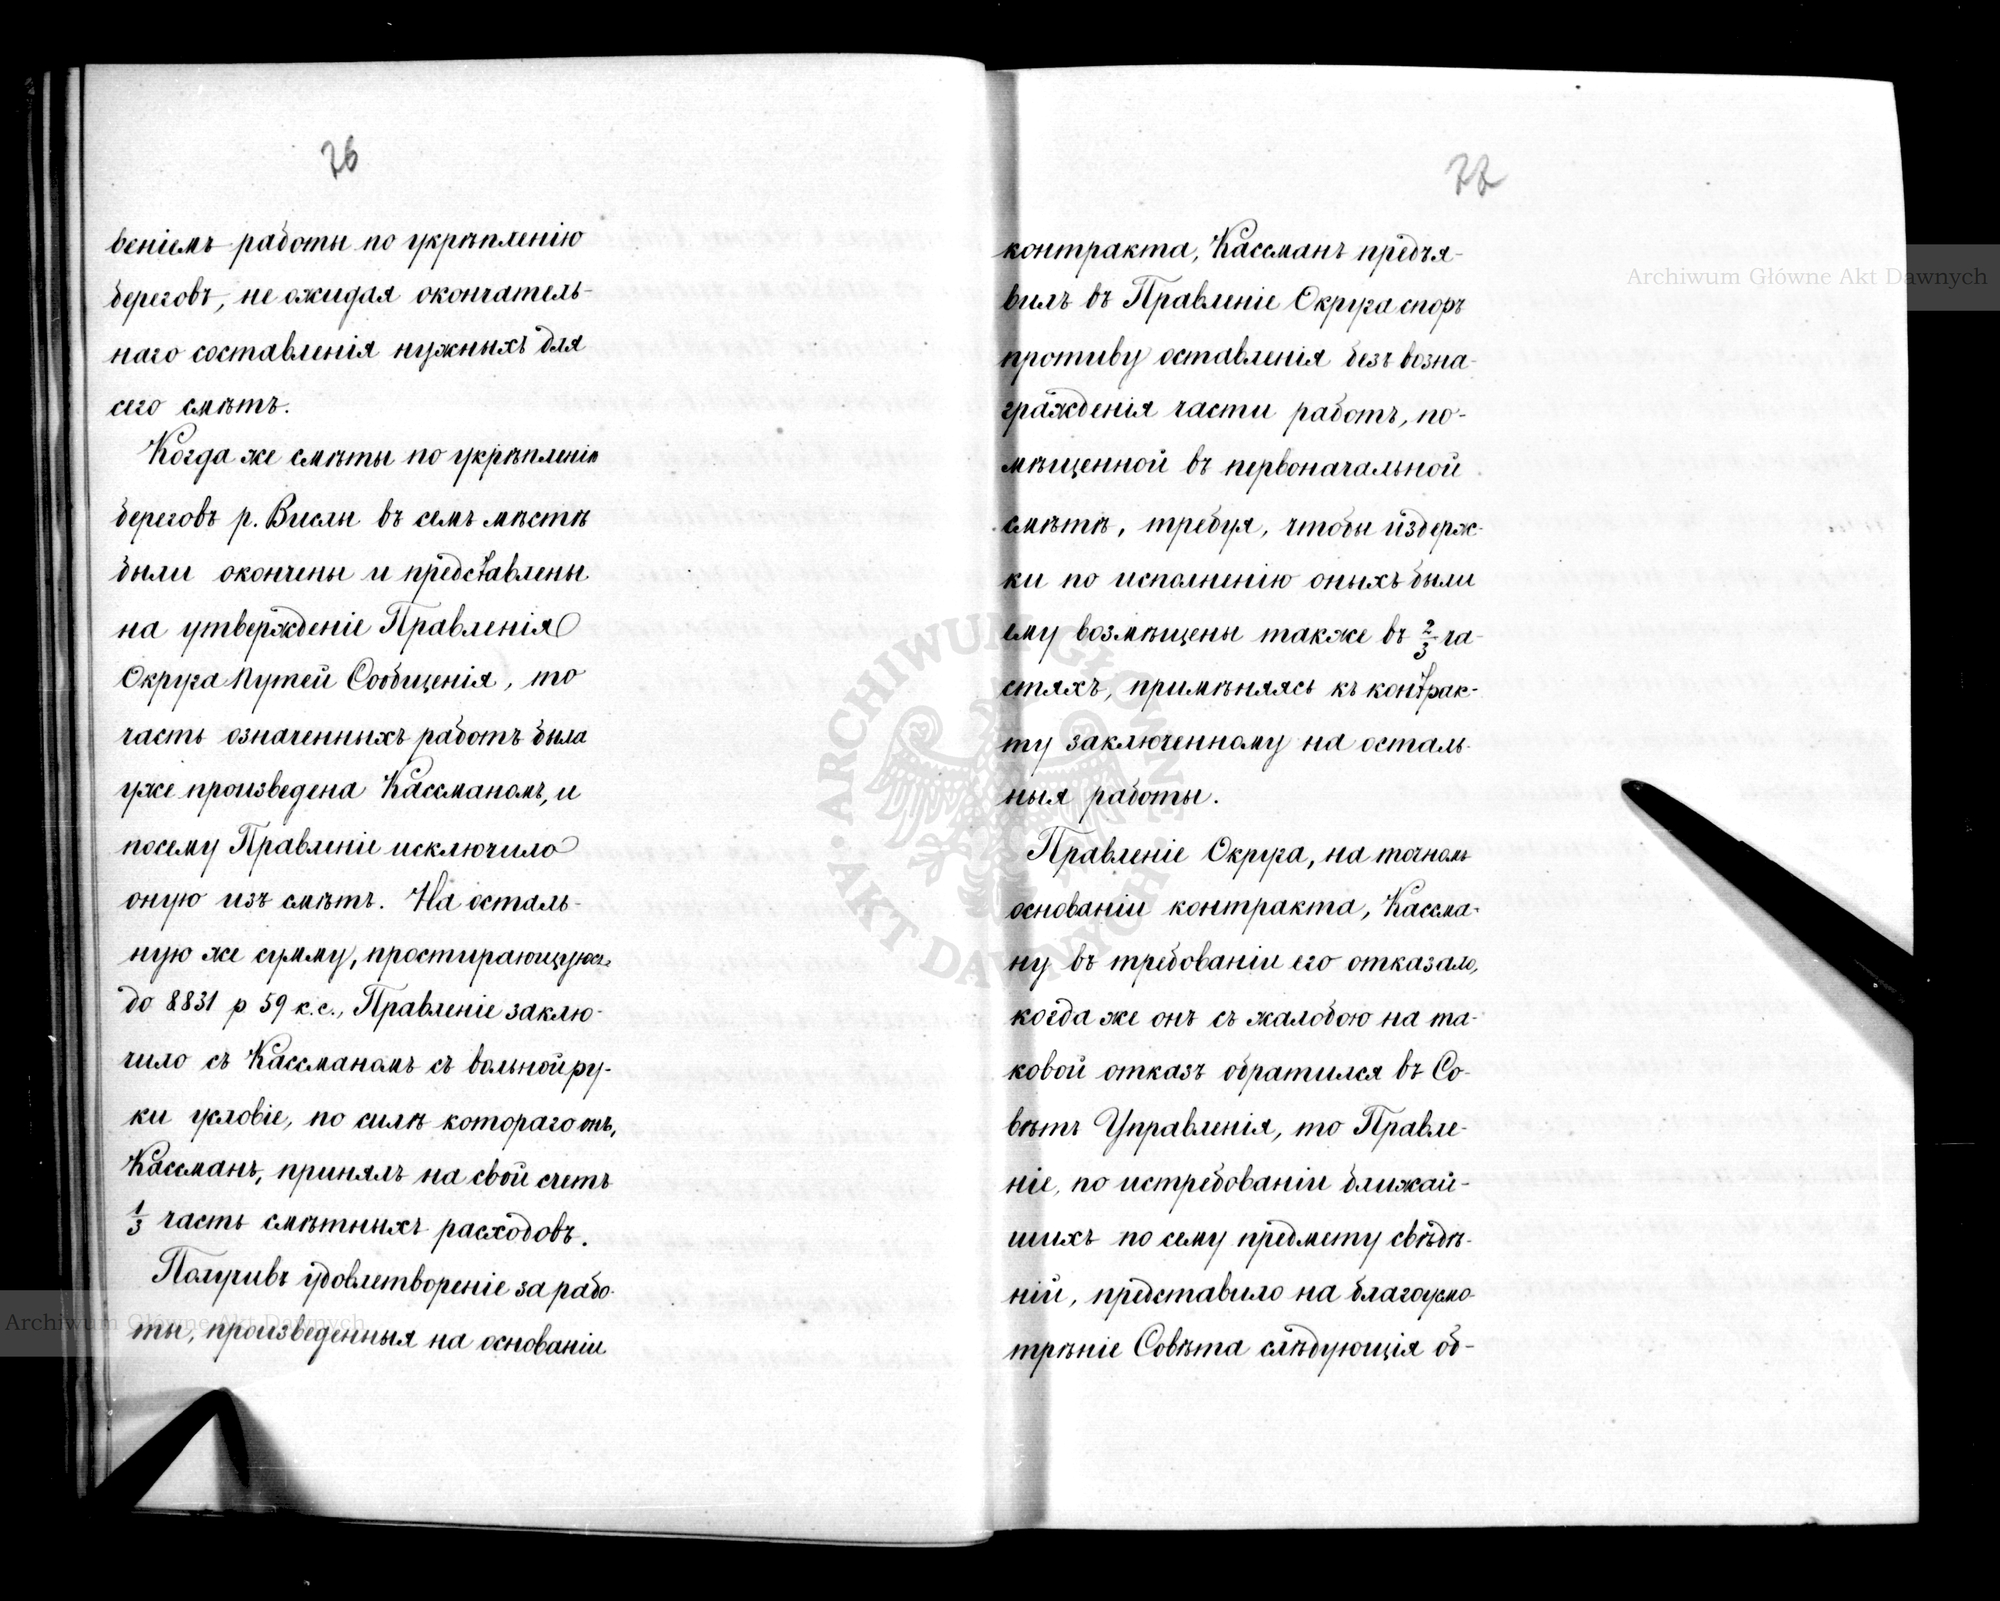 76
веніемъ работы по укрѣпленію
береговъ, не ожидая окончатель-
наго составленія нужныхъ для
сего смѣтъ.
Когда же смѣты по укрѣпленію
береговъ р. Вислы въ семъ мѣстѣ
были окончены и представлены
на утвержденіе Правленія
Округа Путей Сообщенія, то
часть означенныхъ работъ была
уже произведена Кассманомъ, и
посему Правленіе исключило
оную изъ смѣтъ. На осталь-
ную же сумму, простирающуюся
до 8831 р 59 к.с., Правленіе заклю-
чило съ Кассманомъ съ вольной ру-
ки условіе, по силѣ котораго онъ,
Кассманъ, принялъ на свой счетъ
1/3 часть смѣтныхъ расходовъ.
Получивъ удовлетвореніе за рабо-
ты, произведенныя на основаніи
77
контракта, Кассманъ предъя-
вилъ въ Правленіе Округа споръ
противу оставленія безъ возна-
гражденія части работъ, по-
мѣщенной въ первоначальной
смѣтѣ, требуя, чтобы издерж-
ки по исполненію оныхъ были
ему возмѣщены также въ 2/3 ча-
стяхъ, примѣняясь къ контрак-
ту заключенному на осталь-
ныя работы.
Правленіе Округа, на точномъ
основаніи контракта, Кассма-
ну въ требованіи его отказало,
когда же онъ съ жалобою на та-
ковой отказъ обратился въ Со-
вѣтъ Управленія, то Правле-
ніе, по истребованіи ближай-
шихъ по сему предмету свѣдѣ-
ній, представило на благоусмо-
трѣніе Совѣта слѣдующія об-
Archiwum Główne Akt Dawnych
Archiwum Główne Akt Dawnych
ARCHIWUM GŁÓWNE · AKT DAWNYCH ·